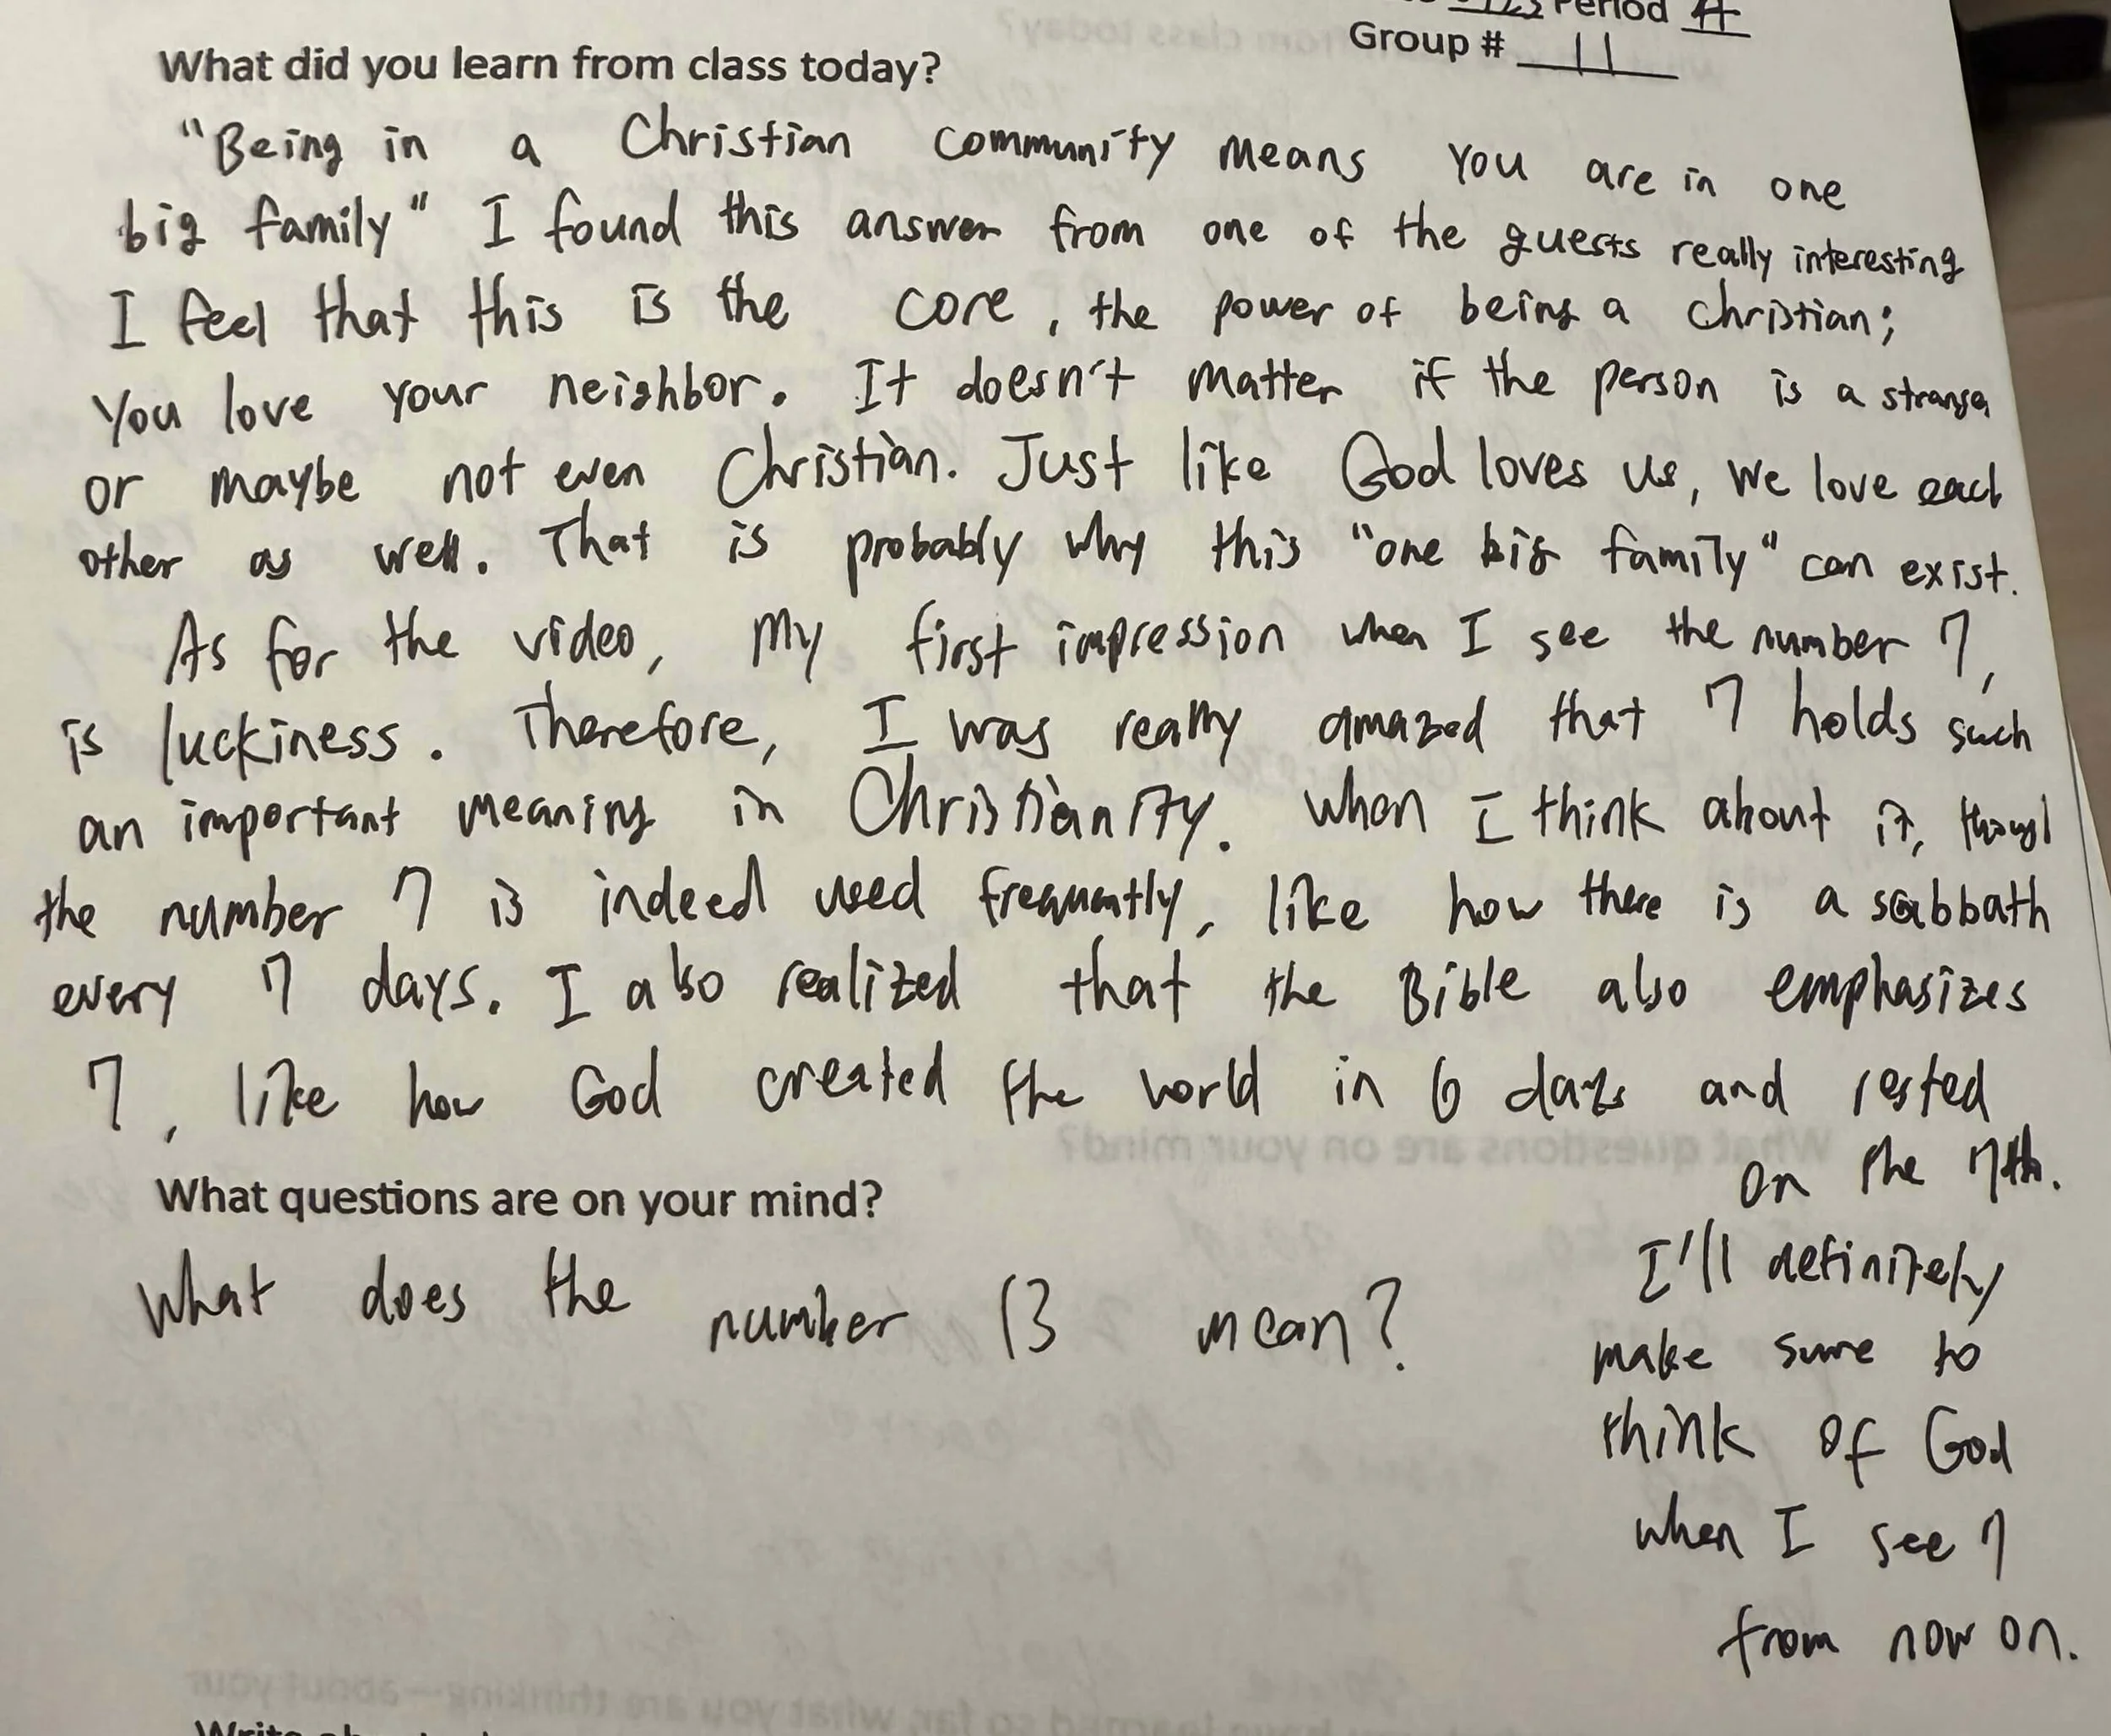 Period A
Group # 11
What did you learn from class today?
"Being in a Christian community means you are in one
big family" I found this answer from one of the guests really interesting
I feel that this is the core, the power of being a christian;
You love your neighbor. It doesn't matter if the person is a stranger
or maybe not even Christian. Just like God loves us, we love each
other as well. That is probably why this "one big family" can exist.
As for the video, my first impression when I see the number 7,
is luckiness. Therefore, I was really amazed that 7 holds such
an important meaning in Christianity. When I think about it, though
the number 7 is indeed used frequently, like how there is a sabbath
every 7 days. I also realized that the Bible also emphasizes
7, like how God created the world in 6 days and rested
on the 7th.
I'll definitely
make sure to
think of God
when I see 7
from now on.
What questions are on your mind?
What does the number 13 mean?